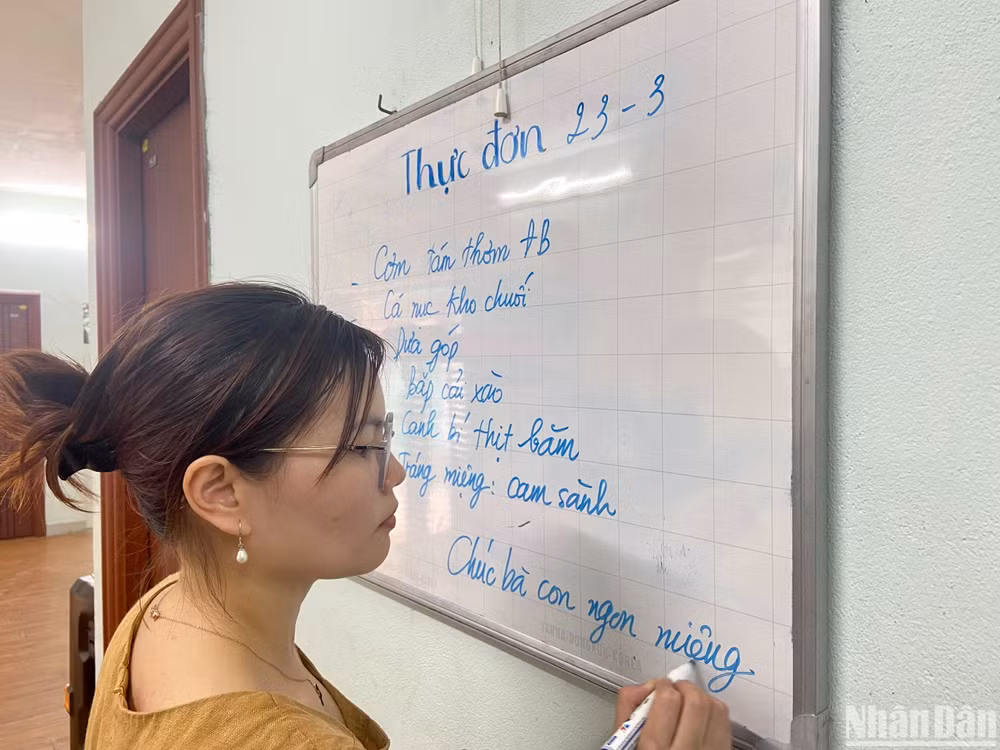 Thực đơn 23-3
- Cơm tấm thơm AB
Cá nục kho chuối
Dưa góp
bắp cải xào
Canh bí thịt băm
Tráng miệng: Cam sành
Chúc bà con ngon miệng
NhânDân